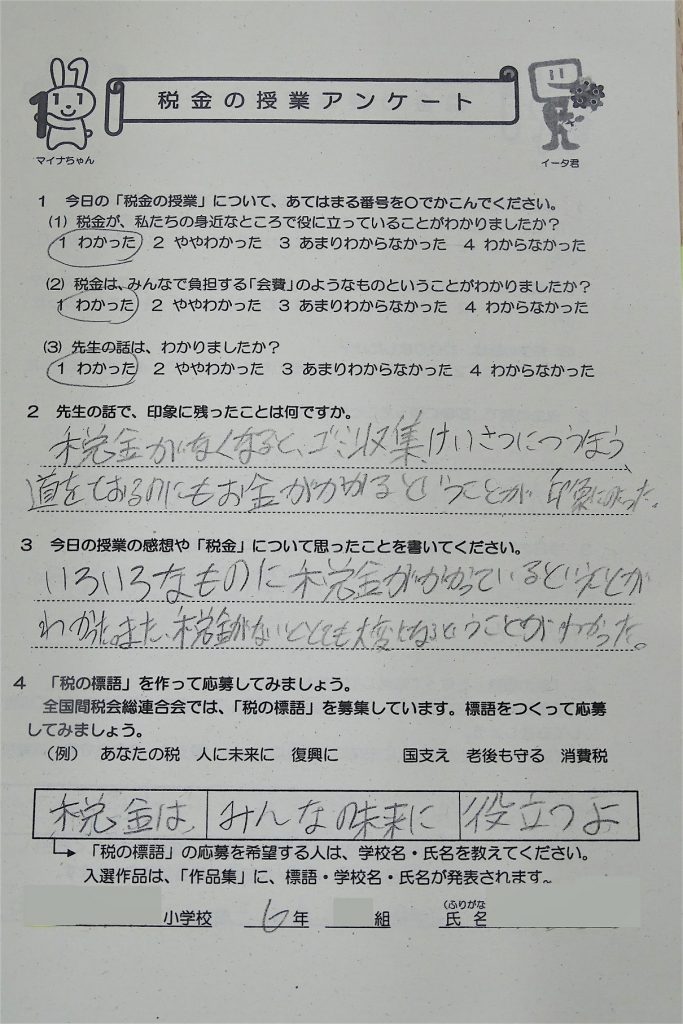 税金の授業アンケート
マイナちゃん
イータ君
1 今日の「税金の授業」について、あてはまる番号を○でかこんでください。
(1) 税金が、私たちの身近なところで役に立っていることがわかりましたか?
1 わかった 2 ややわかった 3 あまりわからなかった 4 わからなかった
(2) 税金は、みんなで負担する「会費」のようなものということがわかりましたか?
1 わかった 2 ややわかった 3 あまりわからなかった 4 わからなかった
(3) 先生の話は、わかりましたか?
1 わかった 2 ややわかった 3 あまりわからなかった 4 わからなかった
2 先生の話で、印象に残ったことは何ですか。
税金がなくなると、ゴミ収集、けいさつにつうほう、
道をとおるのにもお金がかかるということが印象にのこった。
3 今日の授業の感想や「税金」について思ったことを書いてください。
いろいろなものに税金がかかっているということが
わかった。また、税金がないととても大変になるということがわかった。
4 「税の標語」を作って応募してみましょう。
全国間税会総連合会では、「税の標語」を募集しています。標語をつくって応募
してみましょう。
(例) あなたの税 人に未来に 復興に 国支え 老後も守る 消費税
税金は、 みんなの未来に 役立つよ
「税の標語」の応募を希望する人は、学校名・氏名を教えてください。
入選作品は、「作品集」に、標語・学校名・氏名が発表されます。
(ふりがな
小学校 6年 組 氏名